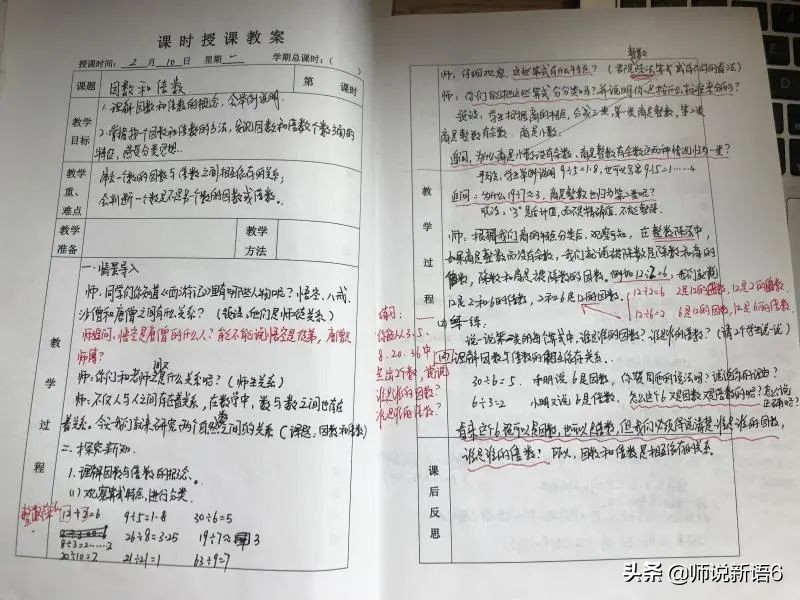 课时授课教案
授课时间： 2 月 10 日 星期 一 学期总课时：（ ）
课题 因数和倍数 第 课时
教学目标
1.理解因数和倍数的概念，会举例说明.
2.掌握找个因数和倍数的方法，发现因数和倍数个数方面的
特征，感受分类思想.
教学重、难点
体会一个数的因数与倍数之间相互依存的关系；
会判断一个数是不是另一个数的因数或倍数。
教学准备 教学方法
教学过程
一.情景导入
师：同学们，你知道《西游记》里有哪些人物呢？悟空、八戒、
沙僧和唐僧之间有什么关系？（预设：他们是师徒关系）
师追问：悟空是唐僧的什么人？能不能说悟空是徒弟，唐僧是
师傅？
师：你们和老师之间是什么关系呢？（师生关系）
师：不仅人与人之间存在着关系，在数学中，数与数之间也存在
着关系。今天我们就来研究两个自然数之间的关系（课题：因数和倍数）
二.探究新知
1.理解因数与倍数的概念。
(1)观察算式特点，进行分类.
整数除法 12÷2=6 9÷5=1.8 30÷6=5
8÷3=2……2 26÷8=3.25 19÷7≈3
20÷10=2 21÷21=1 63÷9=7
师：仔细观察，这些算式有什么特点？
师：你们能把这些算式分分类吗？并说明你是按什么标准分的？
预设：学生根据商的特点，分成三类，第一类商是整数，第二类
商是整数有余数，商是小数.
追问：为什么商是小数没有余数，商是整数有余数这两种情况归为一类？
学生举例说明9÷5=1.8，也可以写为9÷5=1……4
追问：为什么19÷7≈3，商是整数也归为第二类呢？
预设：“3”是估计值，而不是精确值，不能整除.
教学过程
师：根据我们商的特点分类后，观察可知，在整数除法中，
如果商是整数而没有余数，我们就说被除数是除数和商的
倍数，除数和商是被除数的因数。例如12÷2=6，我们就说
12是2和6的倍数，2和6是12的因数。
12÷2=6 2是12的因数，12是2的倍数
12÷6=2 6是12的因数，12是6的倍数.
(2)练一练.
说一说第一类的每个算式中，谁是谁的因数？谁是谁的倍数？（请2个学生说一说）
练习：
你能从3、5、
8、20、36中
选出2个数，说说
谁是谁的因数？
谁是谁的倍数？
理解因数与倍数的相互依存关系.
30÷6=5. 小明说6是因数，你赞同他的说法吗？
6÷3=2 小明又说6是倍数，
看来这个6既可以是因数，也可以是倍数，但我们必须得说清是谁是谁的因数，
谁是谁的倍数？所以，因数和倍数是相互依存的关系。
课后反思
头条 @师说新语6